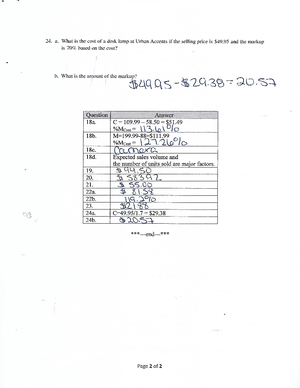 24. a. What is the cost of a desk lamp at Urban Accents if the selling price is $49.95 and the markup
is 70% based on the cost?
b. What is the amount of the markup?
$49.95 - $29.38 = 20.57
Question Answer
18a. C = 109.99 – 58.50 = $51.49
%Mcost = 113.61%
18b. M=199.99-88=$111.99
%Mcost = 127.26%
18c. Camera
18d. Expected sales volume and
the number of units sold are major factors.
19. $ 44.50
20. $ 583.92
21. $ 55.00
22a. $ 81.58
22b.
23. $21.88
24a. C=49.95/1.7 = $29.38
24b. $20.57
***---end---***
Page 2 of 2